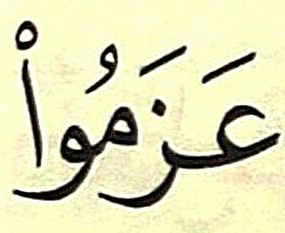 عَزَمُواْ